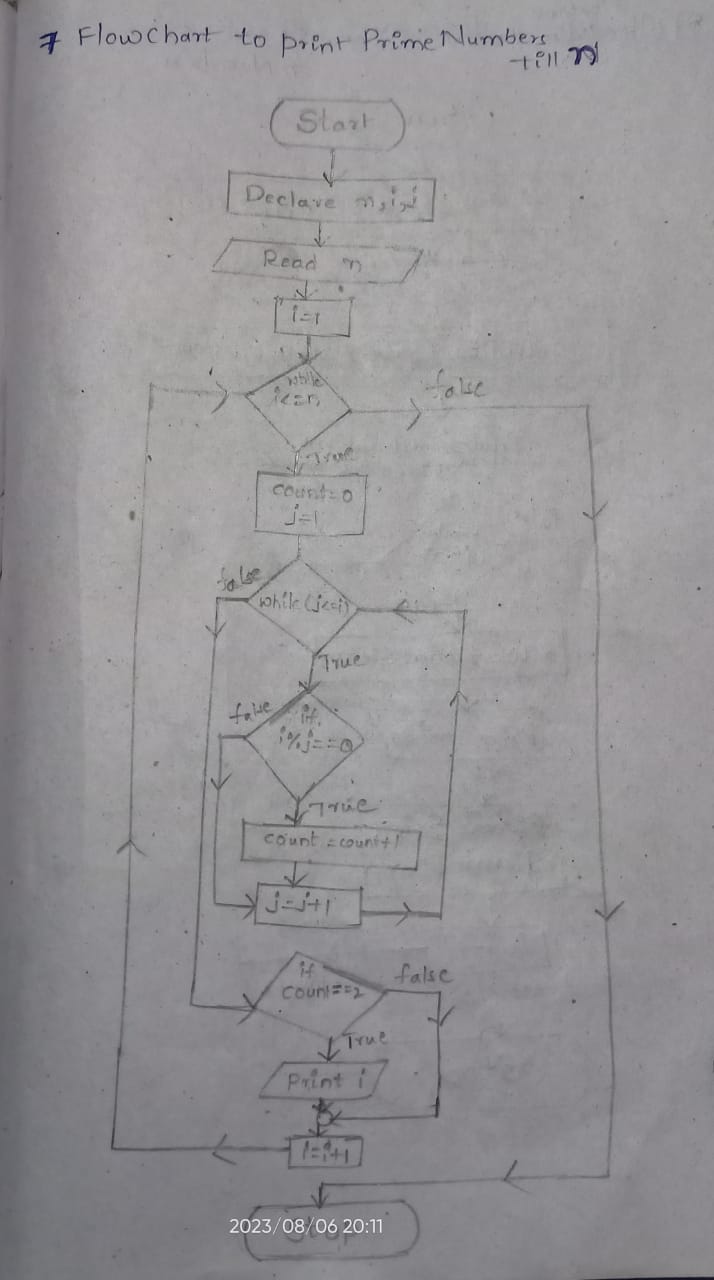 7 Flowchart to print Prime Numbers
till n
Start
Declare n,i,j
Read n
i=1
while
i<=n
false
True
count=0
j=1
false
while(j<=i)
True
false
if
i%j==0
True
count=count+1
j=j+1
if
count==2
false
True
Print i
i=i+1
2023/08/06 20:11
Stop